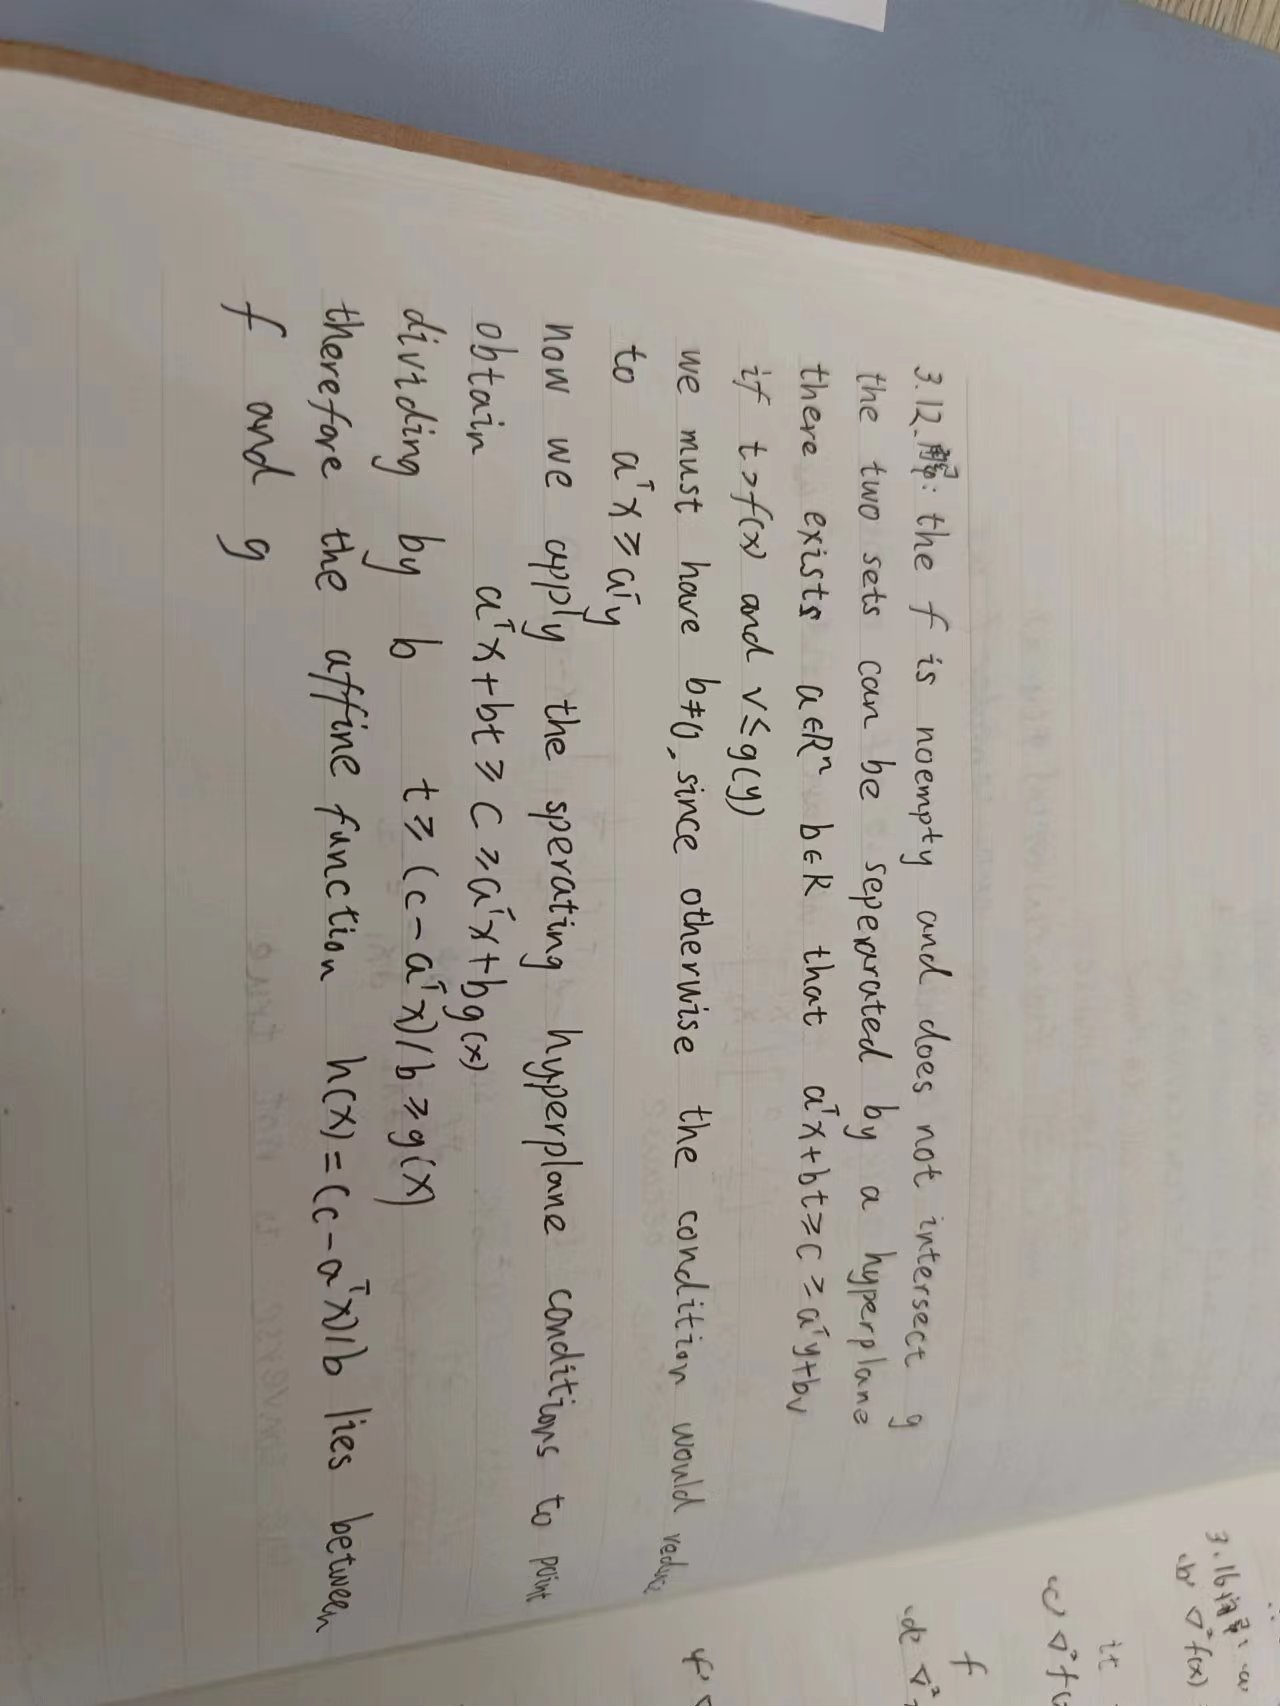 3.12. 解: the f is noempty and does not intersect g
the two sets can be seperarated by a hyperplane
there exists a∈Rⁿ b∈R that aᵀx+bt≥c≥aᵀy+bv
if t>f(x) and v≤g(y)
we must have b≠0, since otherwise the condition would reduce
to aᵀx≥aᵀy
now we apply the sperating hyperplane conditions to point
obtain aᵀx+bt≥c≥aᵀx+bg(x)
dividing by b t≥(c-aᵀx)/b≥g(x)
therefore the affine function h(x)=(c-aᵀx)/b lies between
f and g
3.16 解: (a)
(b) ∇²f(x)
it
(c) ∇²f(
f
(d) ∇²